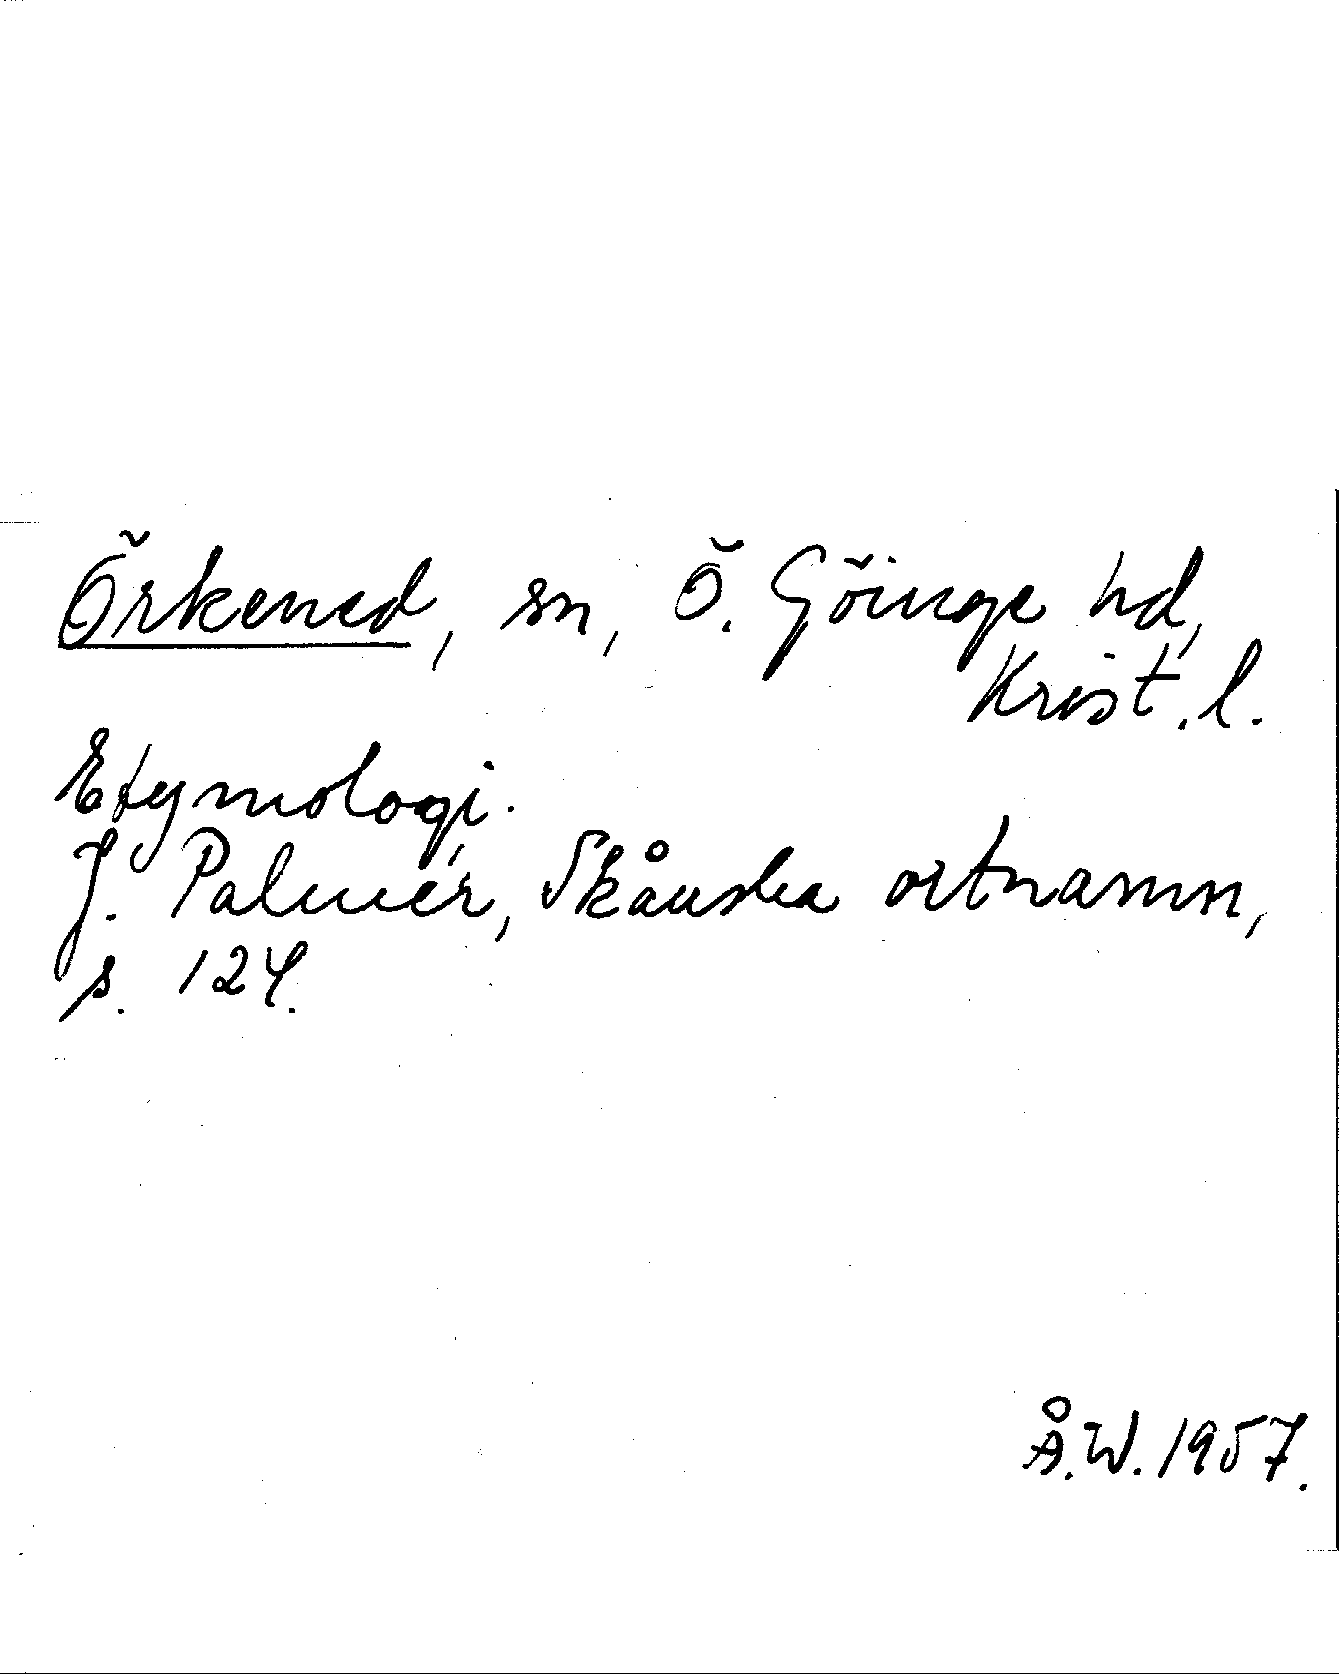 Örkened, sn, Ö. Göinge hd,
Krist. l.
Etymologi.
J. Palmér, Skånska ortnamn,
s. 124.
Å.W. 1957.